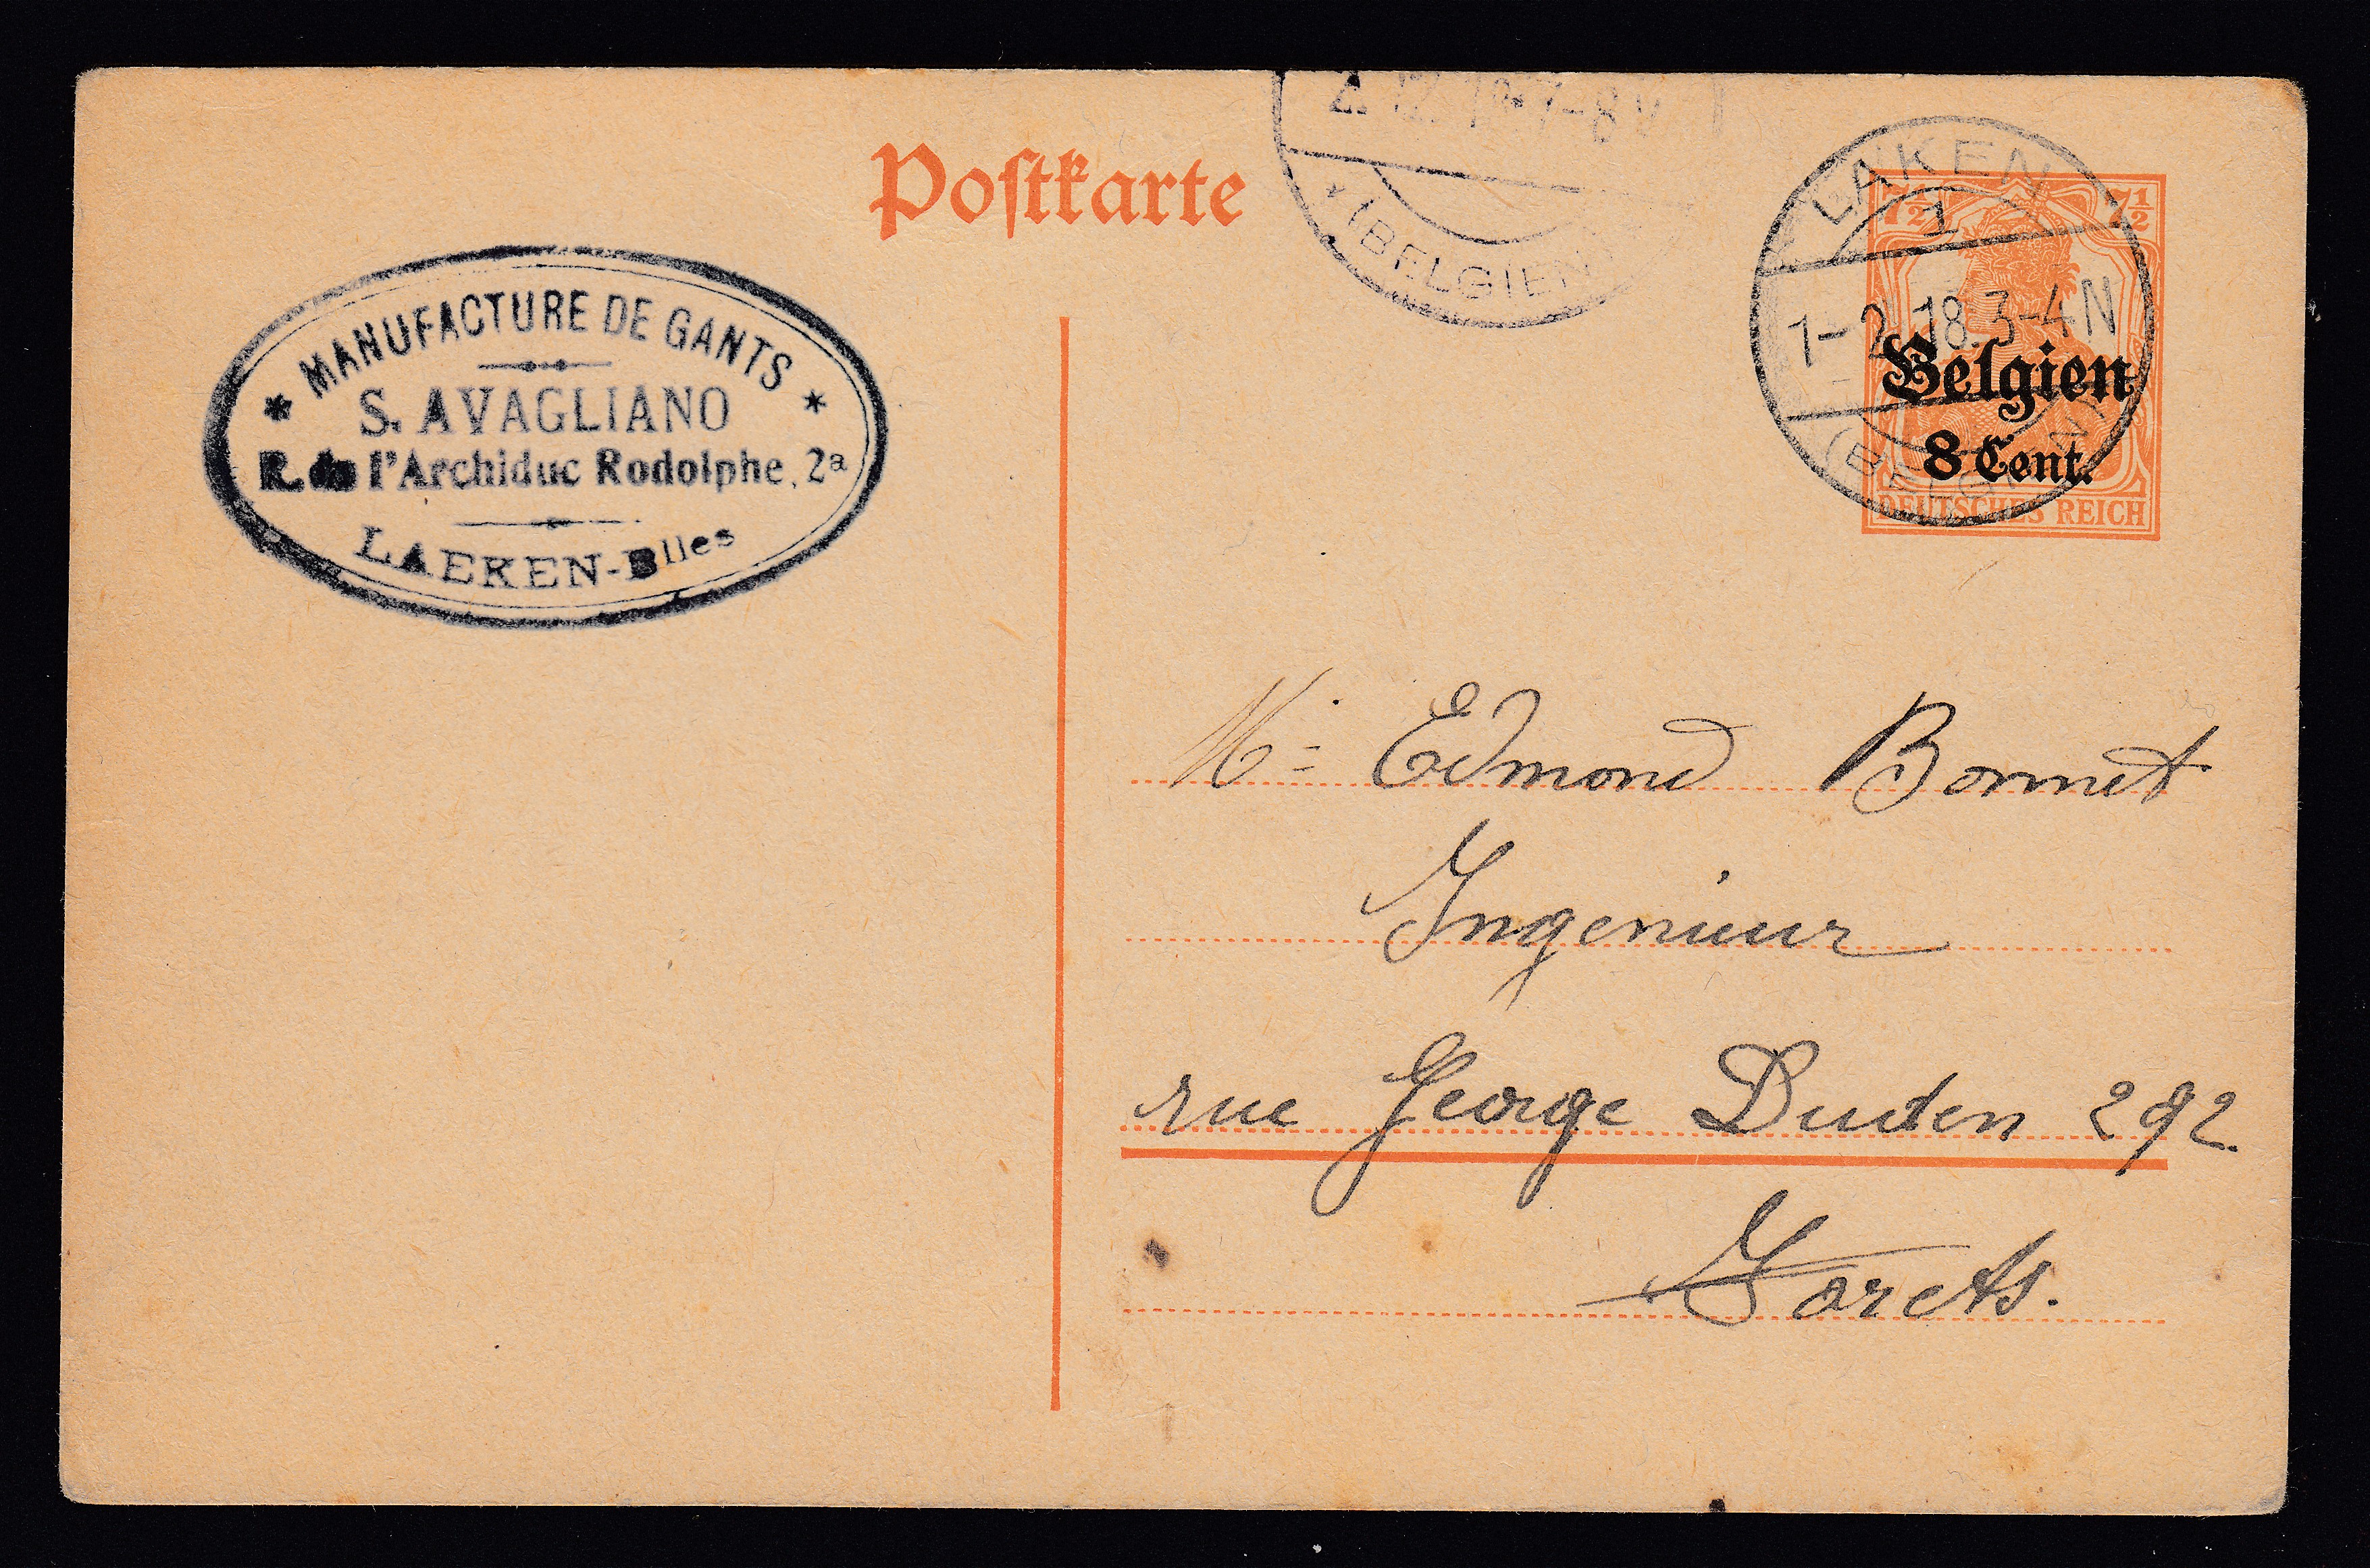 Postkarte
* MANUFACTURE DE GANTS *
S. AVAGLIANO
R. de l'Archiduc Rodolphe, 2a
LAEKEN-Blles
2. 7-8 V
* (BELGIEN)
LAKEN
1
1-2 18. 3-4 N
(BELGIEN)
7½ 7½
Belgien
8 Cent.
DEUTSCHES REICH
Mr Edmond Bonnet
Ingenieur
rue George Duden 292
Forets.